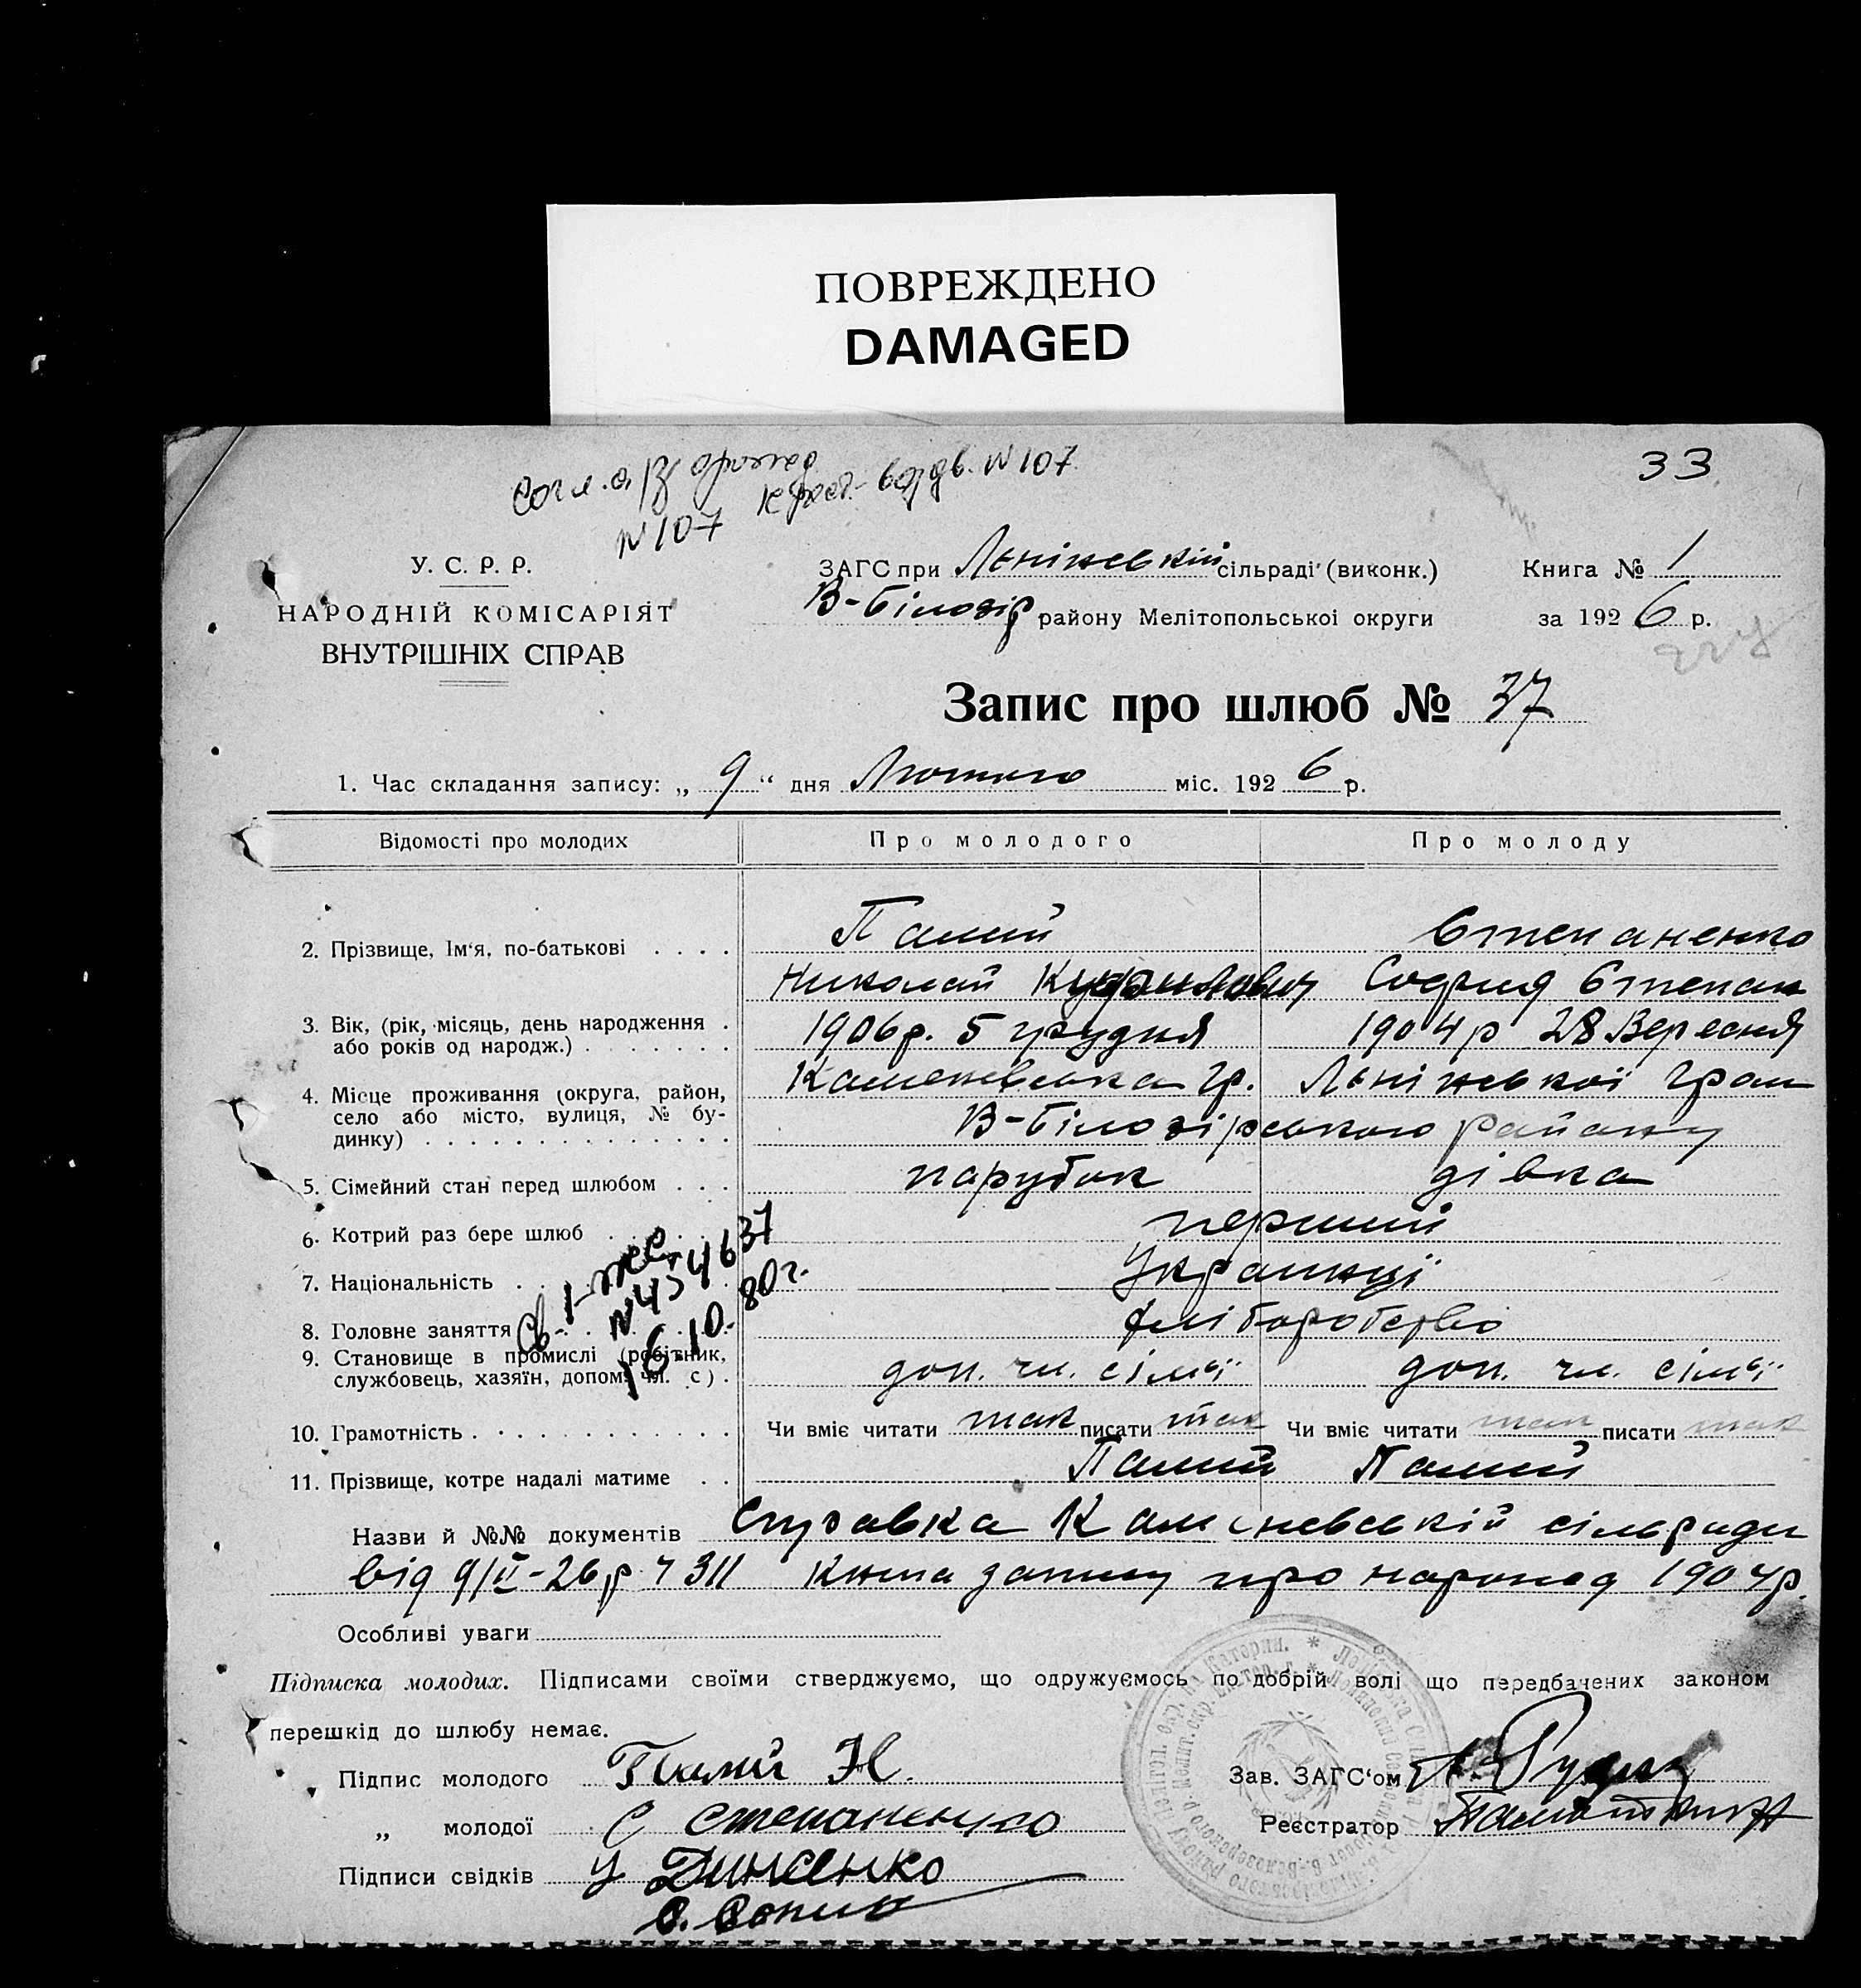 ПОВРЕЖДЕНО
DAMAGED
33
№107
№107
У. С. Р. Р.
НАРОДНІЙ КОМІСАРІЯТ
ВНУТРІШНІХ СПРАВ
ЗАГС при Ленінській сільраді (виконк.)
В-Білозір району Мелітопольської округи
Книга № 1
за 1926 р.
Запис про шлюб № 37
1. Час складання запису: „ 9 “ дня Лютого міс. 1926 р.
Відомості про молодих
Про молодого
Про молоду
2. Прізвище, Ім‘я, по-батькові . . . .
Палий
Степаненко
Николай
София Степан
3. Вік, (рік, місяць, день народження .
або років од народж.) . . . . . . .
1906р. 5 грудня
1904р 28 Вересня
4. Місце проживання (округа, район,
село або місто, вулиця, № бу-
динку) . . . . . . . . . . . . . .
Каменевська гр.
Ленінської гром
В-Білозірського району
5. Сімейний стан перед шлюбом . . .
парубок
дівка
6. Котрий раз бере шлюб
перший
7. Національність
Українці
8. Головне заняття
хліборобство
9. Становище в промислі (робітник,
службовець, хазяїн, допом. чл. с) .
доп. чл. сімьї
доп. чл. сімьї
10. Грамотність . . . . . . . . . . . .
Чи вміє читати так писати так
Чи вміє читати так писати так
11. Прізвище, котре надалі матиме . .
Палий
Палий
10. 80г.
Назви й №№ документів Справка Каменевській сільради
від 9/II-26р ч 311 Книга запису про народ 1904р.
Особливі уваги
Підписка молодих. Підписами своїми стверджуємо, що одружуємось по добрій волі що передбачених законом
перешкід до шлюбу немає.
Підпис молодого Палий Н.
„ молодої С Степаненко
Підписи свідків
Зав. ЗАГС‘ом
Реєстратор